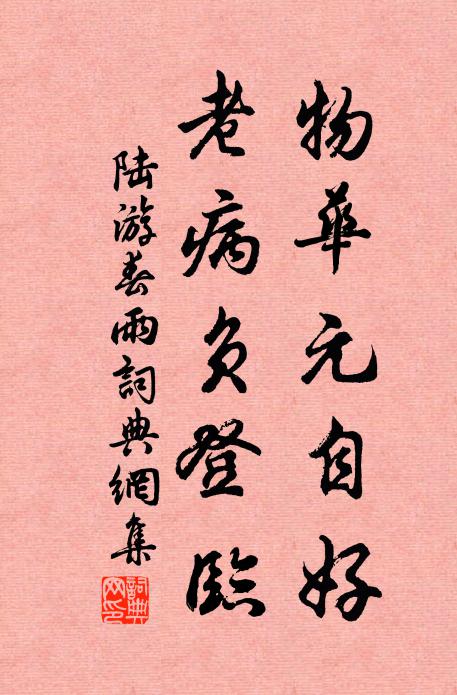 物華元自好
老病負登臨
陸游春雨詞典網集
詞典網印